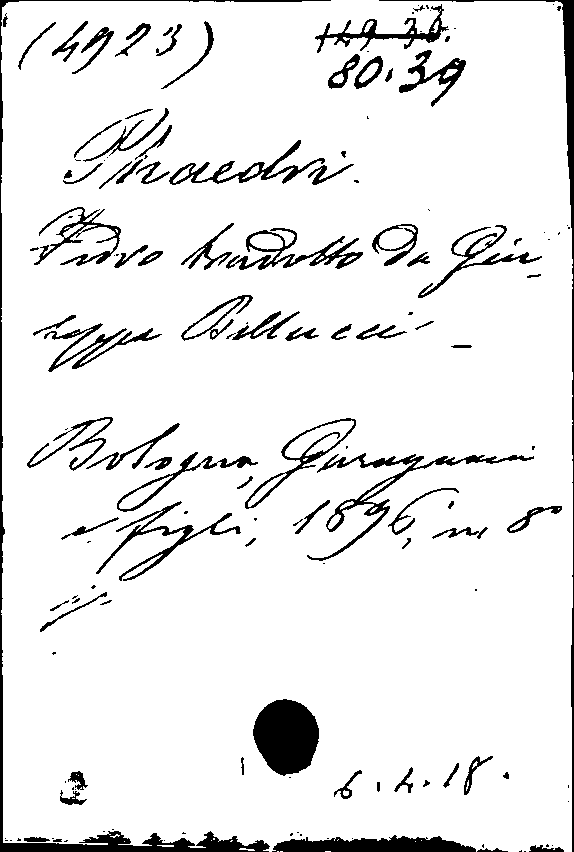 (4923)
149.30.
80.39
Phaedri.
Fedro tradotto da Giu-
seppe Bellucci -
Bologna, Garagnani
e figli, 1896, in 8°
6.4.18.